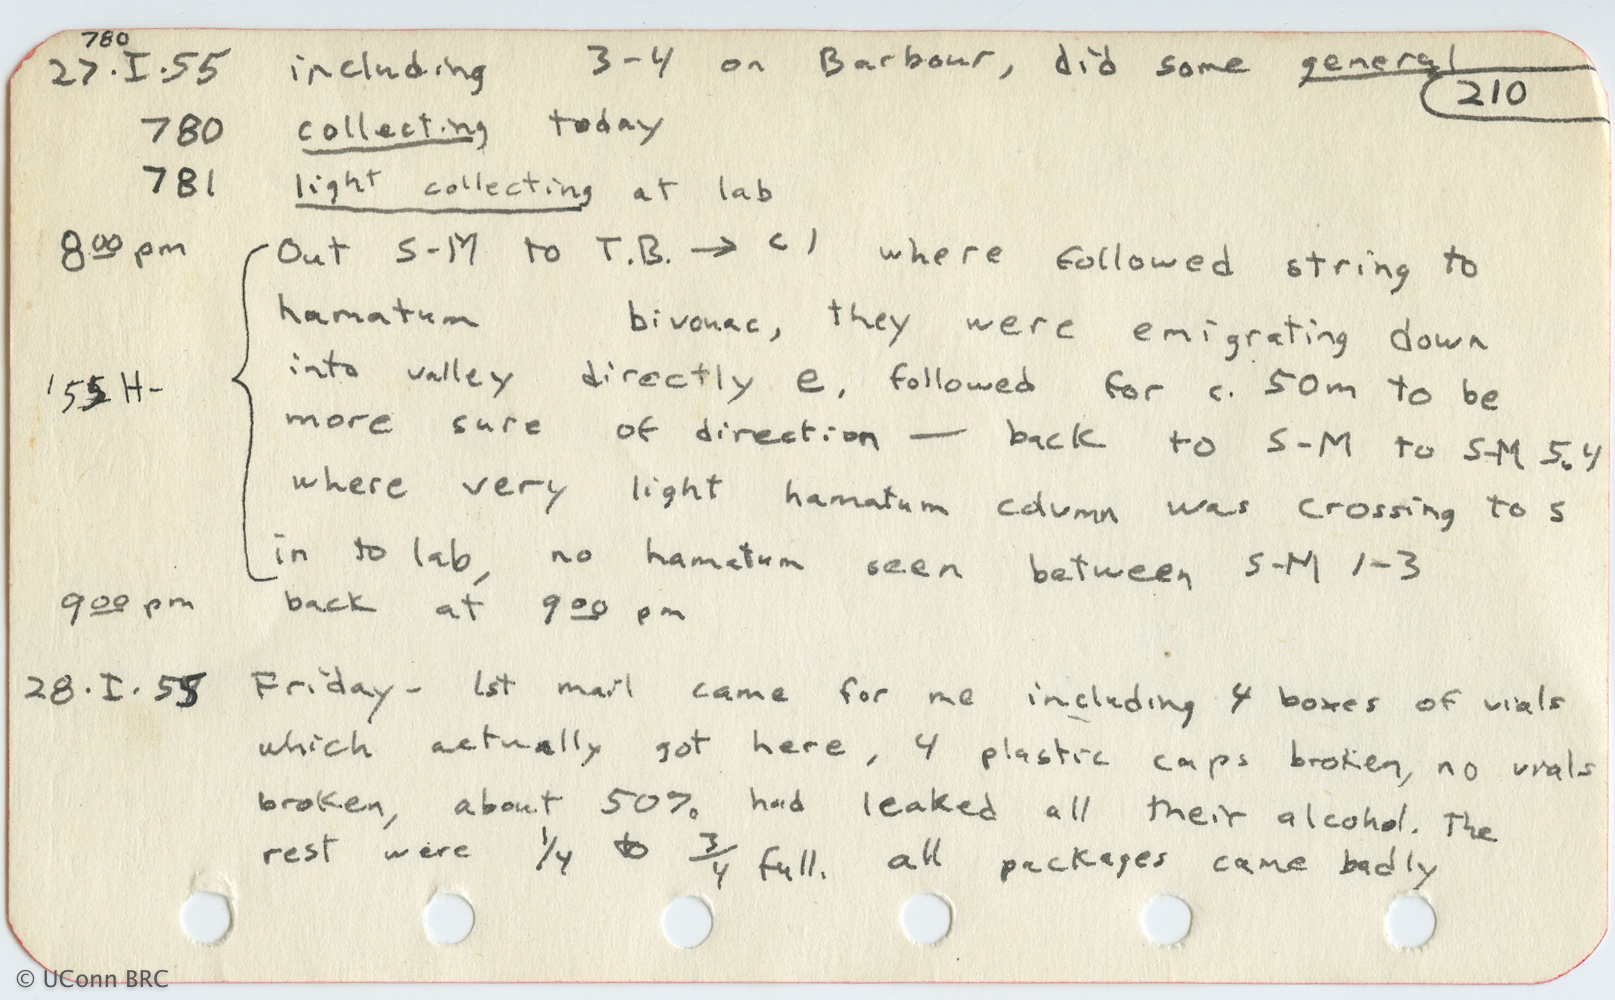 780
27.I.55 including 3-4 on Barbour, did some general
210
780 collecting today
781 light collecting at lab
8⁰⁰ pm Out S-M to T.B. → c 1 where followed string to
hamatum bivouac, they were emigrating down
'55 H- into valley directly e, followed for c. 50m to be
more sure of direction — back to S-M to S-M 5.4
where very light hamatum column was crossing to s
in to lab, no hamatum seen between S-M 1-3
9⁰⁰ pm back at 9⁰⁰ pm
28.I.55 Friday - 1st mail came for me including 4 boxes of vials
which actually got here, 4 plastic caps broken, no vials
broken, about 50% had leaked all their alcohol. The
rest were 1/4 to 3/4 full. all packages came badly
© UConn BRC